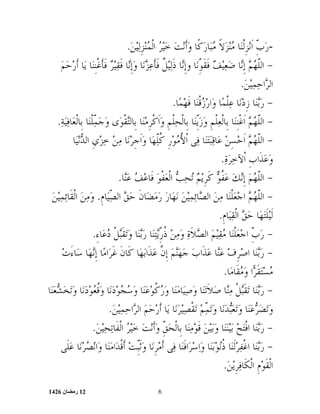 -رَبّ اَنْزِلْنَا مُنْزَلاً مُبَارَكًا وَأَنْتَ خَيْرُ الْمُنْزِلِيْنَ.
- اَللّٰهُمَّ إِنَّا ضَعِيْفٌ فَقَوِّنَا وَإِنَّا ذَلِيْلٌ فَأَعِزَّنَا وَإِنَّا فَقِيْرٌ فَأَغْنِنَا يَا أَرْحَمَ
الرَّاحِمِيْنَ.
- رَبَّنَا زِدْنَا عِلْمًا وَارْزُقْنَا فَهْمًا.
- اَللّٰهُمَّ اَغْنِنَا بِالْعِلْمِ وَزَيِّنَا بِالْحِلْمِ وَاَكْرِمْنَا بِالتَّقْوَى وَجَمِّلْنَا بِالْعَافِيَةِ.
- اَللّٰهُمَّ اَحْسِنْ عَاقِبَتَنَا فِى اْلأُمُوْرِ كُلِّهَا وَاَجِرْنَا مِنْ خِزْيِ الدُّنْيَا
وَعَذَابِ اْلآخِرَةِ.
- اَللّٰهُمَّ إِنَّكَ عَفُوٌّ كَرِيْمٌ تُحِبُّ الْعَفْوَ فَاعْفُ عَنَّا.
- اَللّٰهُمَّ اجْعَلْنَا مِنَ الصَّائِمِيْنَ نَهَارَ رَمَضَانَ حَقَّ الصِّيَامِ. وَمِنَ الْقَائِمِيْنَ
لَيْلَتَهَا حَقَّ الْقِيَامِ.
- رَبّ اجْعَلْنَا مُقِيْمَ الصَّلاَةِ وَمِنْ ذُرِّيَّتِنَا رَبَّنَا وَتَقَبَّلْ دُعَاءِ.
- رَبَّنَا اصْرِفْ عَنَّا عَذَابَ جَهَنَّمَ إِنَّ عَذَابَهَا كَانَ غَرَامًا إِنَّهَا سَاءَتْ
مُسْتَقَرًّا وَمُقَامًا.
- رَبَّنَا تَقَبَّلْ مِنَّا صَلاَتَنَا وَصِيَامَنَا وَرُكُوْعَنَا وَسُجُوْدَنَا وَقُعُوْدَنَا وَتَخَشُّعَنَا
وَتَضَرُّعَنَا وَتَعَبُّدَنَا وَتَمِّمْ تَقْصِيْرَنَا يَا أَرْحَمَ الرَّاحِمِيْنَ.
- رَبَّنَا افْتَحْ بَيْنَنَا وَبَيْنَ قَوْمِنَا بِالْحَقِّ وَأَنْتَ خَيْرُ الْفَاتِحِيْنَ.
- رَبَّنَا اغْفِرْلَنَا ذُنُوْبَنَا وَاِسْرَافَنَا فِى أَمْرِنَا وَثَبِّتْ أَقْدَامَنَا وَانْصُرْنَا عَلَى
الْقَوْمِ الْكَافِرِيْنَ.
12 رمضان 1426
6